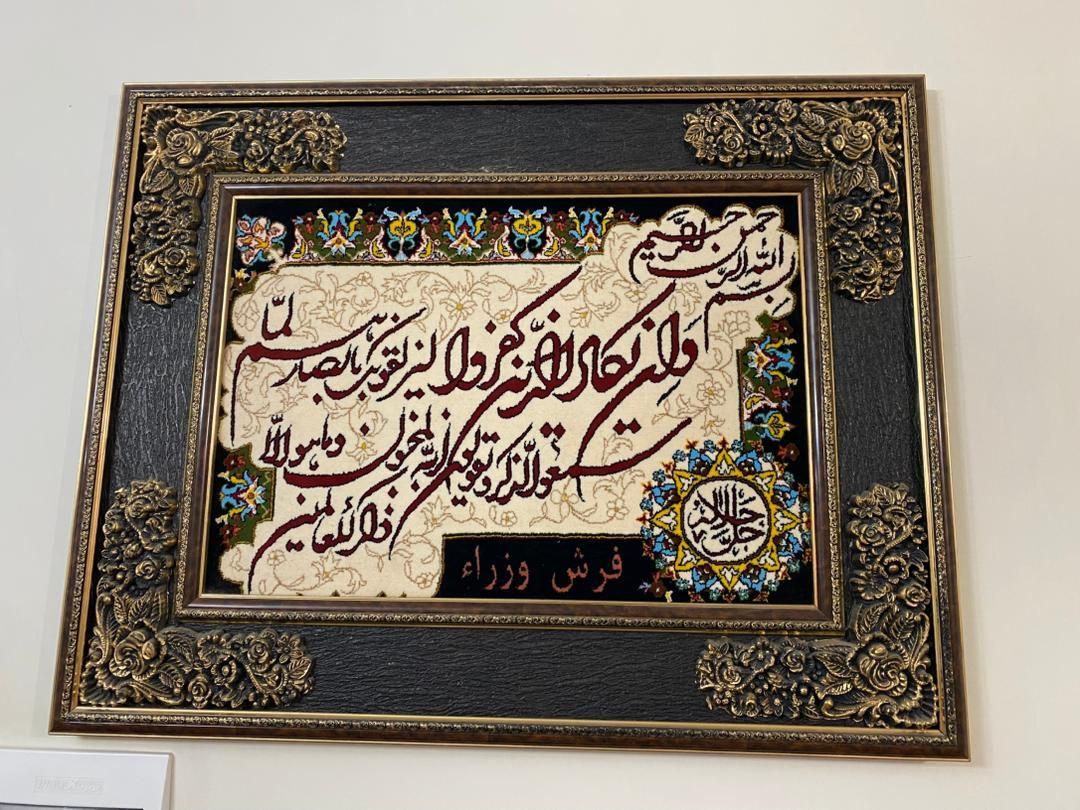 بسم الله الرحمن الرحیم
وان یکاد الذین کفروا لیزلقونک بابصارهم لمّا
سمعوا الذکر و یقولون انه لمجنون وما هو الّا
ذکر للعالمین
جل جلاله
فرش وزراء